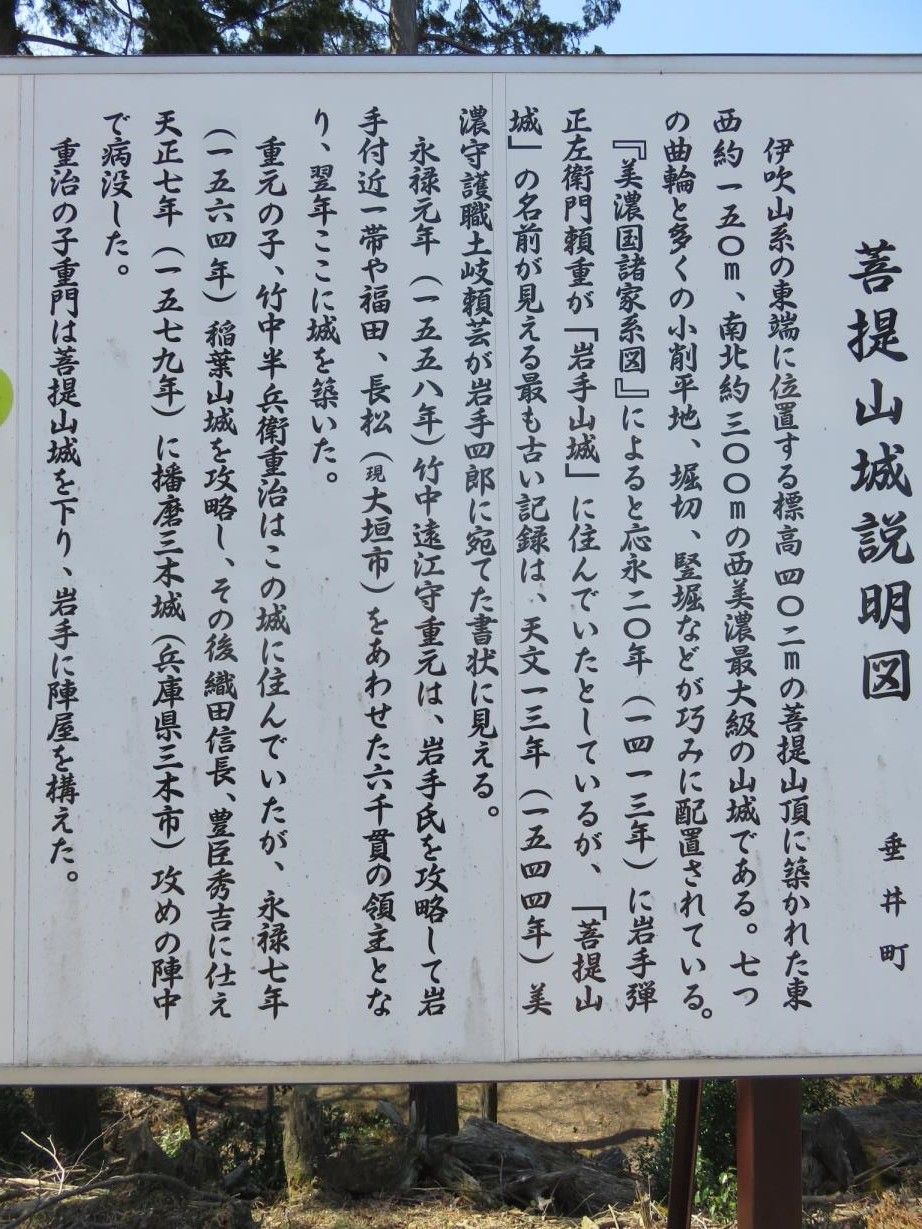 菩提山城説明図
垂井町
伊吹山系の東端に位置する標高四〇二mの菩提山頂に築かれた東
西約一五〇m、南北約三〇〇mの西美濃最大級の山城である。七つ
の曲輪と多くの小削平地、堀切、竪堀などが巧みに配置されている。
『美濃国諸家系図』によると応永二〇年（一四一三年）に岩手弾
正左衛門頼重が「岩手山城」に住んでいたとしているが、「菩提山
城」の名前が見える最も古い記録は、天文一三年（一五四四年）美
濃守護職土岐頼芸が岩手四郎に宛てた書状に見える。
永禄元年（一五五八年）竹中遠江守重元は、岩手氏を攻略して岩
手付近一帯や福田、長松（現大垣市）をあわせた六千貫の領主とな
り、翌年ここに城を築いた。
重元の子、竹中半兵衛重治はこの城に住んでいたが、永禄七年
（一五六四年）稲葉山城を攻略し、その後織田信長、豊臣秀吉に仕え
天正七年（一五七九年）に播磨三木城（兵庫県三木市）攻めの陣中
で病没した。
重治の子重門は菩提山城を下り、岩手に陣屋を構えた。